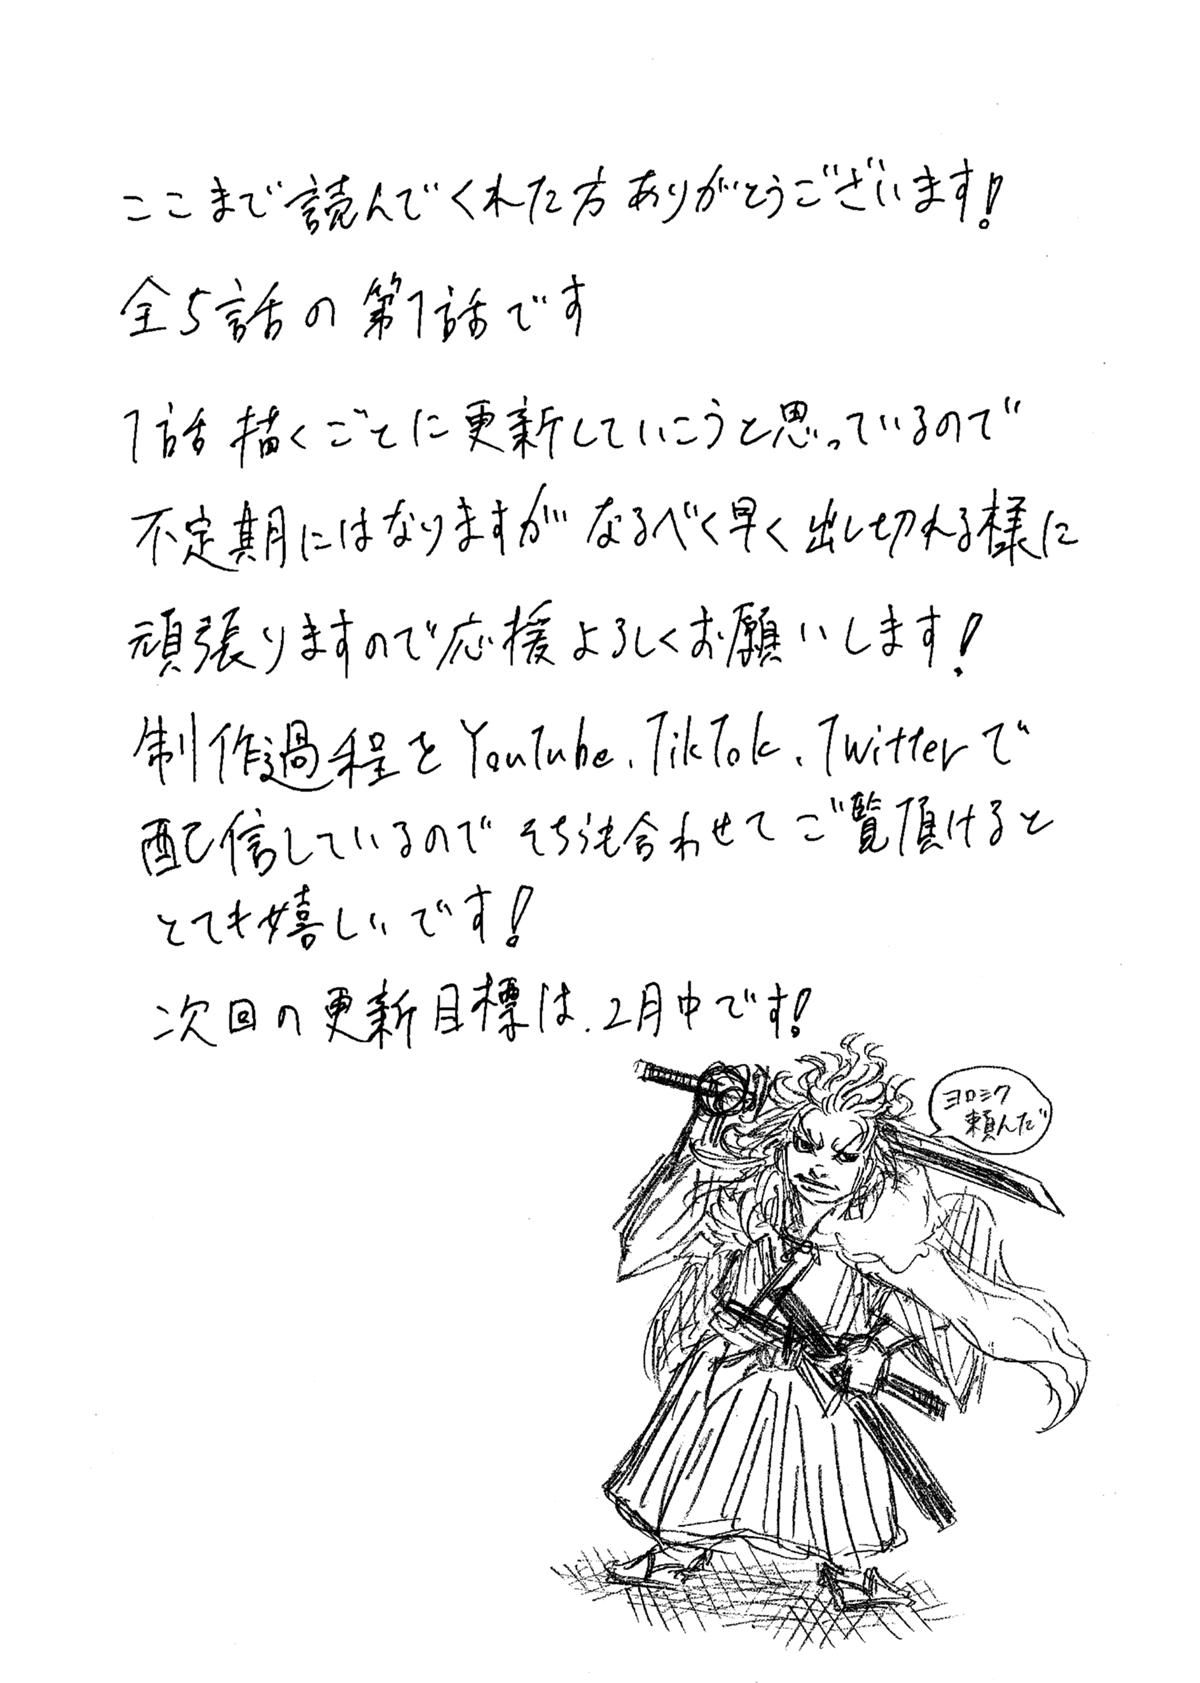 ここまで読んでくれた方ありがとうございます!
全5話の第1話です
1話描くごとに更新していこうと思っているので
不定期にはなりますがなるべく早く出し切れる様に
頑張りますので応援よろしくお願いします!
制作過程をYouTube、TikTok、Twitterで
配信しているのでそちらも合わせてご覧頂けると
とても嬉しいです!
次回の更新目標は、2月中です!
ヨロシク
頼んだ゛